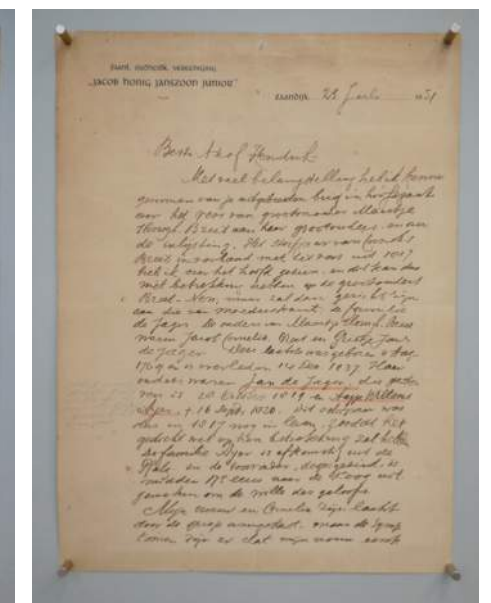 ZAANL. OUDHEIDK. VEREENIGING
„JACOB HONIG JANSZOON JUNIOR"
ZAANDIJK, 29 Juli 1951
Beste Neef Hendrik
Met veel belangstelling heb ik kennis
genomen van je uitgebreiden brief in
voor het van grootmoeder Maartje
Honigh. Breet aan haar grootouders, en aan
de inlijsting. Het van Cornelis
Breet in verband met het vers uit 1817
heb ik over het hoofd gezien, en dit kan dus
niet betrekking hebben op de grootouders
Breet - Non, maar zal dan gericht zijn
aan die van moederskant, de familie
de Jager. De ouders van Maartje Honigh. Breet
waren Jacob Cornelisz. Breet en Grietje Jans
de Jager. Deze laatste was geboren 2 Aug.
1769 en is overleden 14 Dec. 1837. Haar
ouders waren Jan de Jager, die gestor-
ven is 20 October 1819 en Aagje Willems
† 16 Sept. 1820. Dit echtpaar was
dus in 1817 nog in leven, zoodat het
gedicht wel op hen betrekking zal hebben
De familie is afkomstig uit de
Pfalz, en de voorvader, is
midden 17e eeuw naar de Koog uit-
geweken om de wille des geloofs
Mijn vrouw en Cornelia zijn laatst
door de griep aangetast, maar de symp-
tomen zijn er dat mijn vrouw eerst